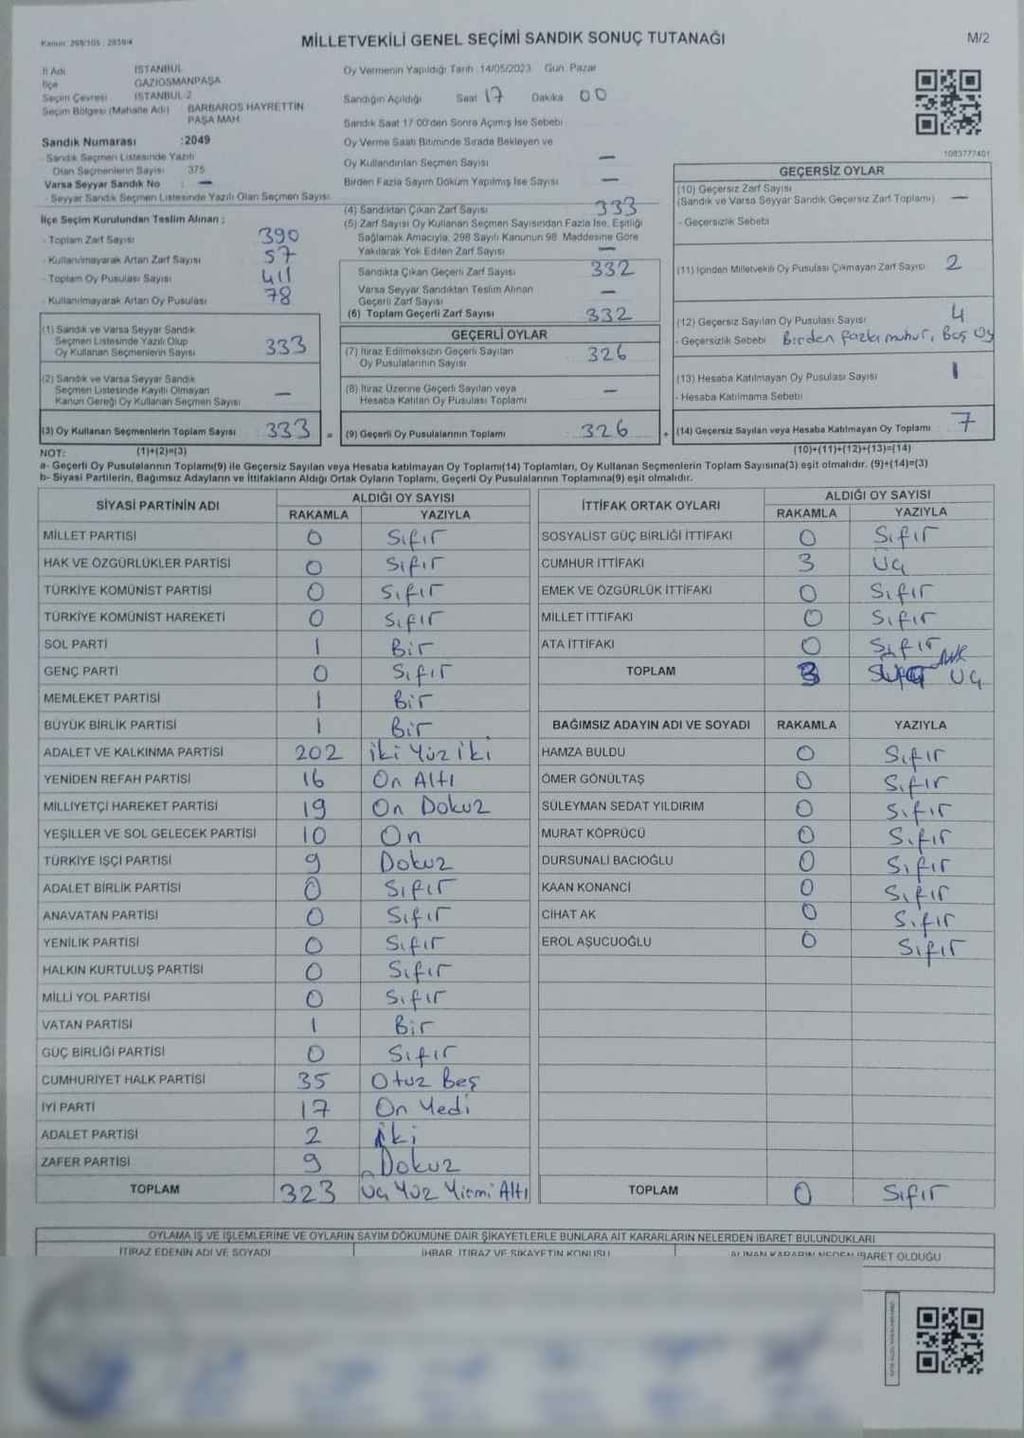 MİLLETVEKİLİ GENEL SEÇİMİ SANDIK SONUÇ TUTANAĞI
M/2
İl Adı İSTANBUL
İlçe GAZİOSMANPAŞA
Seçim Çevresi İSTANBUL 2
Seçim Bölgesi (Mahalle Adı) BARBAROS HAYRETTİN PAŞA MAH.
Sandık Numarası :2049
Sandık Seçmen Listesinde Yazılı
Olan Seçmenlerin Sayısı 375
Varsa Seyyar Sandık No : —
Seyyar Sandık Seçmen Listesinde Yazılı Olan Seçmen Sayısı
İlçe Seçim Kurulundan Teslim Alınan ;
- Toplam Zarf Sayısı 390
- Kullanılmayarak Artan Zarf Sayısı 57
- Toplam Oy Pusulası Sayısı 411
- Kullanılmayarak Artan Oy Pusulası 78
(1) Sandık ve Varsa Seyyar Sandık
Seçmen Listesinde Yazılı Olup
Oy Kullanan Seçmenlerin Sayısı 333
(2) Sandık ve Varsa Seyyar Sandık
Seçmen Listesinde Kayıtlı Olmayan
Kanun Gereği Oy Kullanan Seçmen Sayısı —
(3) Oy Kullanan Seçmenlerin Toplam Sayısı 333 =
Oy Vermenin Yapıldığı Tarih : 14/05/2023 Gün: Pazar
Sandığın Açıldığı Saat 17 Dakika 00
Sandık Saat 17:00'den Sonra Açılmış İse Sebebi
Oy Verme Saati Bitiminde Sırada Bekleyen ve
Oy Kullandırılan Seçmen Sayısı —
Birden Fazla Sayım Döküm Yapılmış İse Sayısı —
(4) Sandıktan Çıkan Zarf Sayısı 333
(5) Zarf Sayısı Oy Kullanan Seçmen Sayısından Fazla İse, Eşitliği
Sağlamak Amacıyla, 298 Sayılı Kanunun 98. Maddesine Göre
Yakılarak Yok Edilen Zarf Sayısı —
Sandıkta Çıkan Geçerli Zarf Sayısı 332
Varsa Seyyar Sandıktan Teslim Alınan
Geçerli Zarf Sayısı —
(6) Toplam Geçerli Zarf Sayısı 332
GEÇERLİ OYLAR
(7) İtiraz Edilmeksizin Geçerli Sayılan
Oy Pusulalarının Sayısı 326
(8) İtiraz Üzerine Geçerli Sayılan veya
Hesaba Katılan Oy Pusulası Toplamı —
(9) Geçerli Oy Pusulalarının Toplamı 326 +
1083777401
GEÇERSİZ OYLAR
(10) Geçersiz Zarf Sayısı
(Sandık ve Varsa Seyyar Sandık Geçersiz Zarf Toplamı) —
- Geçersizlik Sebebi
(11) İçinden Milletvekili Oy Pusulası Çıkmayan Zarf Sayısı 2
(12) Geçersiz Sayılan Oy Pusulası Sayısı 4
- Geçersizlik Sebebi Birden fazla mühür, Boş Oy
(13) Hesaba Katılmayan Oy Pusulası Sayısı 1
- Hesaba Katılmama Sebebi
(14) Geçersiz Sayılan veya Hesaba Katılmayan Oy Toplamı 7
NOT: (1)+(2)=(3) (10)+(11)+(12)+(13)=(14)
a- Geçerli Oy Pusulalarının Toplamı(9) ile Geçersiz Sayılan veya Hesaba katılmayan Oy Toplamı(14) Toplamları, Oy Kullanan Seçmenlerin Toplam Sayısına(3) eşit olmalıdır. (9)+(14)=(3)
b- Siyasi Partilerin, Bağımsız Adayların ve İttifakların Aldığı Ortak Oyların Toplamı, Geçerli Oy Pusulalarının Toplamına(9) eşit olmalıdır.
SİYASİ PARTİNİN ADI ALDIĞI OY SAYISI
RAKAMLA YAZIYLA
MİLLET PARTİSİ 0 Sıfır
HAK VE ÖZGÜRLÜKLER PARTİSİ 0 Sıfır
TÜRKİYE KOMÜNİST PARTİSİ 0 Sıfır
TÜRKİYE KOMÜNİST HAREKETİ 0 Sıfır
SOL PARTİ 1 Bir
GENÇ PARTİ 0 Sıfır
MEMLEKET PARTİSİ 1 Bir
BÜYÜK BİRLİK PARTİSİ 1 Bir
ADALET VE KALKINMA PARTİSİ 202 İki Yüz İki
YENİDEN REFAH PARTİSİ 16 On Altı
MİLLİYETÇİ HAREKET PARTİSİ 19 On Dokuz
YEŞİLLER VE SOL GELECEK PARTİSİ 10 On
TÜRKİYE İŞÇİ PARTİSİ 9 Dokuz
ADALET BİRLİK PARTİSİ 0 Sıfır
ANAVATAN PARTİSİ 0 Sıfır
YENİLİK PARTİSİ 0 Sıfır
HALKIN KURTULUŞ PARTİSİ 0 Sıfır
MİLLİ YOL PARTİSİ 0 Sıfır
VATAN PARTİSİ 1 Bir
GÜÇ BİRLİĞİ PARTİSİ 0 Sıfır
CUMHURİYET HALK PARTİSİ 35 Otuz Beş
İYİ PARTİ 17 On Yedi
ADALET PARTİSİ 2 İki
ZAFER PARTİSİ 9 Dokuz
TOPLAM 323 Üç Yüz Yirmi Altı
İTTİFAK ORTAK OYLARI ALDIĞI OY SAYISI
RAKAMLA YAZIYLA
SOSYALİST GÜÇ BİRLİĞİ İTTİFAKI 0 Sıfır
CUMHUR İTTİFAKI 3 Üç
EMEK VE ÖZGÜRLÜK İTTİFAKI 0 Sıfır
MİLLET İTTİFAKI 0 Sıfır
ATA İTTİFAKI 0 Sıfır
TOPLAM 3 Üç
BAĞIMSIZ ADAYIN ADI VE SOYADI RAKAMLA YAZIYLA
HAMZA BULDU 0 Sıfır
ÖMER GÖNÜLTAŞ 0 Sıfır
SÜLEYMAN SEDAT YILDIRIM 0 Sıfır
MURAT KÖPRÜCÜ 0 Sıfır
DURSUNALİ BACIOĞLU 0 Sıfır
KAAN KONANCİ 0 Sıfır
CİHAT AK 0 Sıfır
EROL AŞUCUOĞLU 0 Sıfır
TOPLAM 0 Sıfır
OYLAMA İŞ VE İŞLEMLERİNE VE OYLARIN SAYIM DÖKÜMÜNE DAİR ŞİKAYETLERLE BUNLARA AİT KARARLARIN NELERDEN İBARET BULUNDUKLARI
İTİRAZ EDENİN ADI VE SOYADI İHBAR, İTİRAZ VE ŞİKAYETİN KONUSU ALINAN KARARIN NEDEN İBARET OLDUĞU